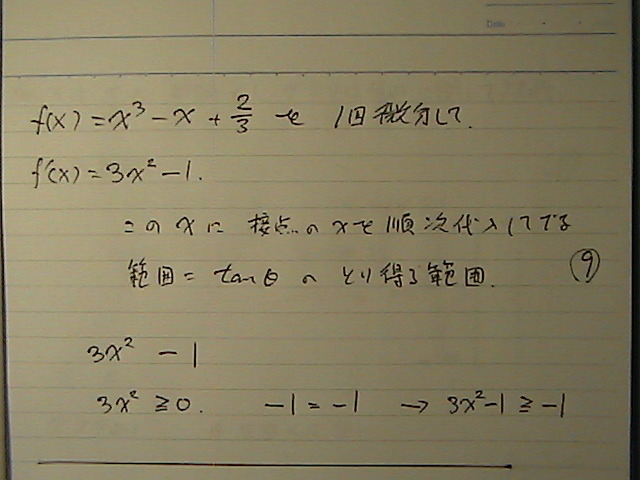 Date
f(x) = x³ - x + 2/3 を 1回微分して.
f'(x) = 3x² - 1.
この x に 接点の x を 順次代入してでる
範囲 = tanθ の とり得る範囲.
⑨
3x² - 1
3x² ≧ 0. -1 = -1 → 3x²-1 ≧ -1